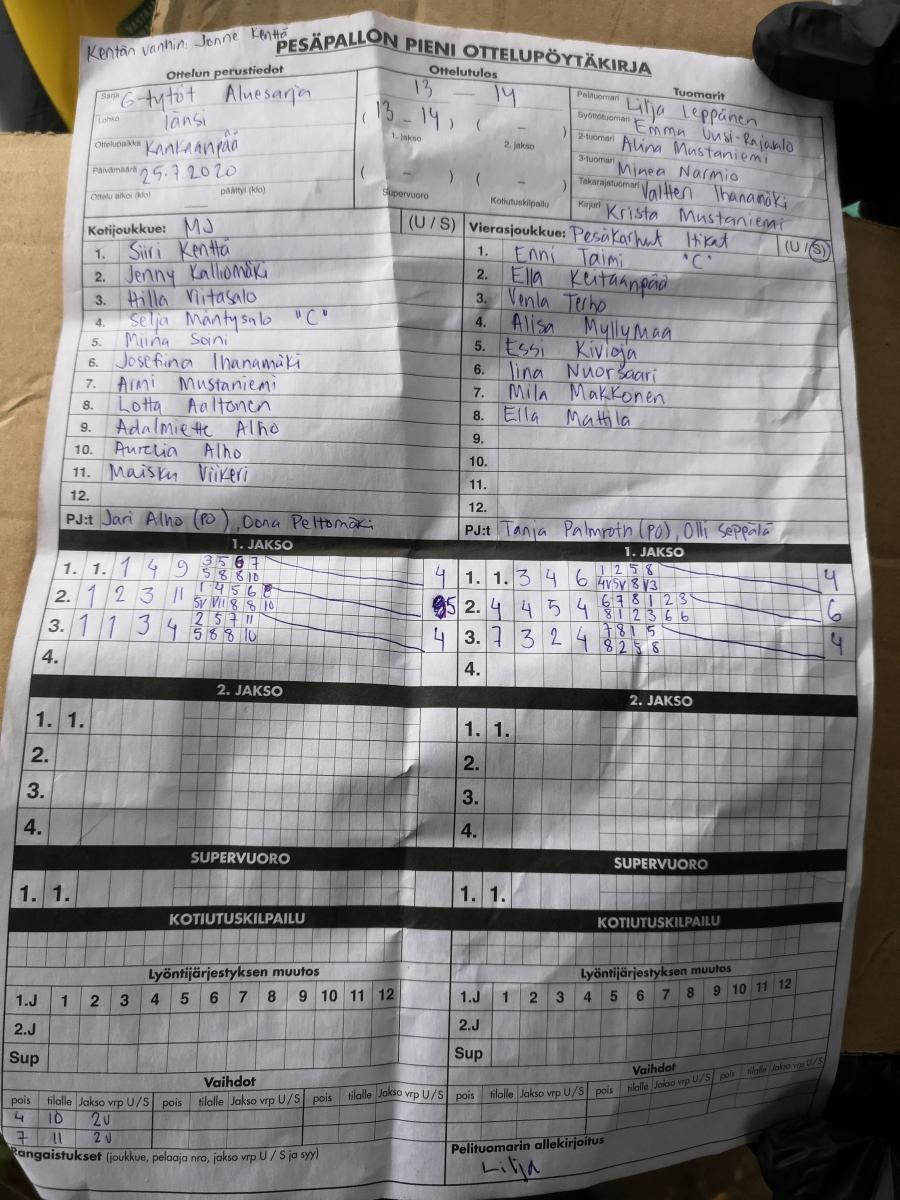 Kentän vanhin: Jonne Kenttä
PESÄPALLON PIENI OTTELUPÖYTÄKIRJA
Ottelun perustiedot
Sarja G-tytöt Aluesarja
Lohko länsi
Ottelupaikka Kankaanpää
Päivämäärä 25.7.2020
Ottelu alkoi (klo) päättyi (klo)
Ottelutulos
13 — 14
(13 - 14) ( - )
1. jakso 2. jakso
( - ) ( - )
Supervuoro Kotiutuskilpailu
Tuomarit
Pelituomari Lilja Leppänen
Syöttötuomari Emma Uusi-Rajasalo
2-tuomari Alina Mustaniemi
3-tuomari Minea Narmio
Takarajatuomari Valtteri Ihanamäki
Kirjuri Krista Mustaniemi
Kotijoukkue: MJ (U / S)
1. Siiri Kenttä
2. Jenny Kalliomäki
3. Hilla Viitasalo
4. Selja Mäntysalo "C"
5. Miina Soini
6. Josefiina Ihanamäki
7. Aimi Mustaniemi
8. Lotta Aaltonen
9. Adalmiette Alho
10. Aurelia Alho
11. Maisku Viikeri
12.
PJ:t Jari Alho (PO), Oona Peltomäki
Vierasjoukkue: Pesäkarhut Itikat (U / S)
1. Enni Taimi "C"
2. Ella Keitaanpää
3. Venla Terho
4. Alisa Myllymaa
5. Essi Kivioja
6. Iina Nuorsaari
7. Mila Makkonen
8. Ella Mattila
9.
10.
11.
12.
PJ:t Tanja Palmroth (PO), Olli Seppälä
1. JAKSO
1. 1. 1 4 9 3 5 6 7 4
5 8 8 10
2. 1 2 3 11 1 4 5 6 8 5
5V VII 8 8 10
3. 1 1 3 4 2 5 7 11 4
5 8 8 10
4.
1. JAKSO
1. 1. 3 4 6 1 2 5 8 4
4V 5V 8 V3
2. 4 4 5 4 6 7 8 1 2 3 6
8 1 2 3 6 6
3. 7 3 2 4 7 8 1 5 4
8 2 5 8
4.
2. JAKSO
1. 1.
2.
3.
4.
2. JAKSO
1. 1.
2.
3.
4.
SUPERVUORO
1. 1.
SUPERVUORO
1. 1.
KOTIUTUSKILPAILU
KOTIUTUSKILPAILU
Lyöntijärjestyksen muutos
1.J 1 2 3 4 5 6 7 8 9 10 11 12
2.J
Sup
Lyöntijärjestyksen muutos
1.J 1 2 3 4 5 6 7 8 9 10 11 12
2.J
Sup
Vaihdot
pois tilalle Jakso vrp U / S pois tilalle Jakso vrp U / S pois tilalle Jakso vrp U / S
4 10 2U
7 11 2U
Vaihdot
pois tilalle Jakso vrp U / S pois tilalle Jakso vrp U / S pois tilalle Jakso vrp U / S
Rangaistukset (joukkue, pelaaja nro, jakso vrp U / S ja syy)
Pelituomarin allekirjoitus
Lilja